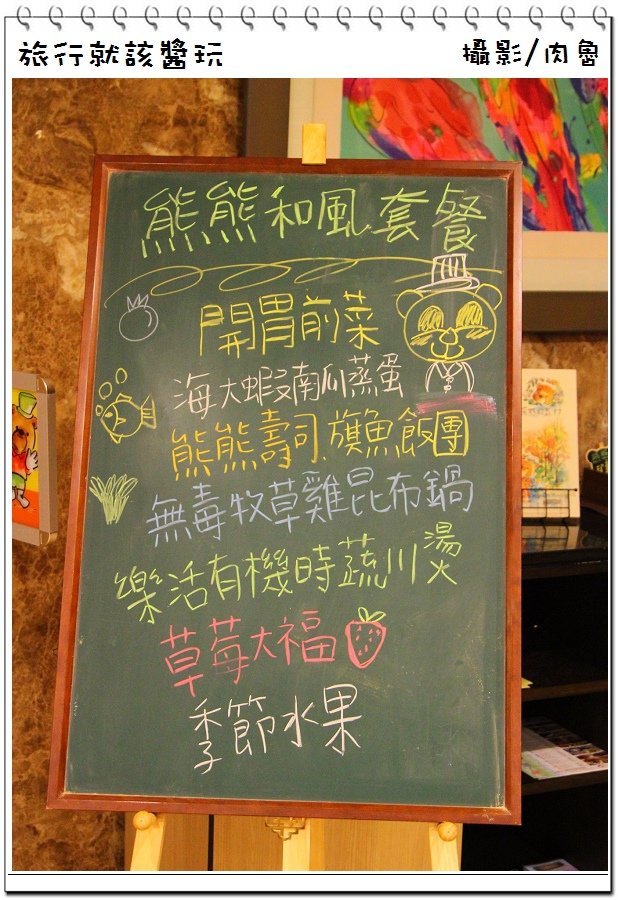 旅行就該醬玩
攝影/肉魯
熊熊和風套餐
開胃前菜
海大蝦南瓜蒸蛋
熊熊壽司、旗魚飯團
無毒牧草雞昆布鍋
樂活有機時蔬川燙
草莓大福
季節水果